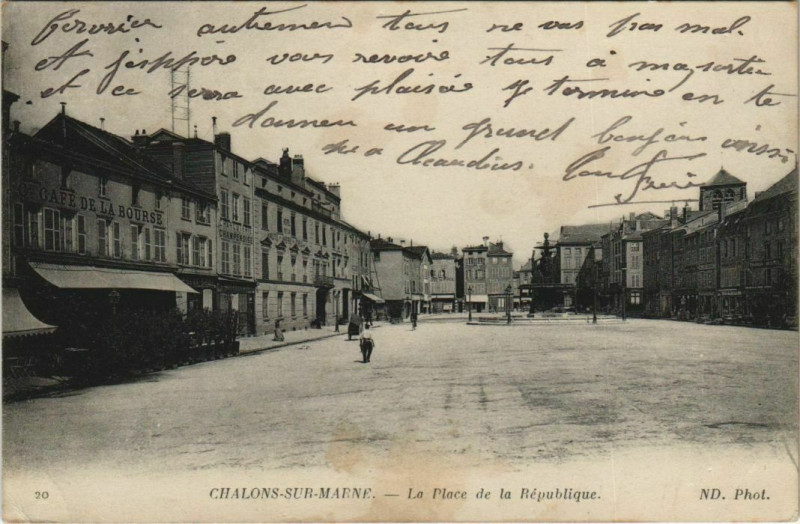 autrement tous ne vas pas mal.
et j'espère vous revoire tous à ma sortie
et ce sera avec plaisir je termine en te
donnen un grand bonjour
Claudius. Ton frère
Gd CAFÉ DE LA BOURSE
20
CHALONS-SUR-MARNE. — La Place de la République.
ND. Phot.